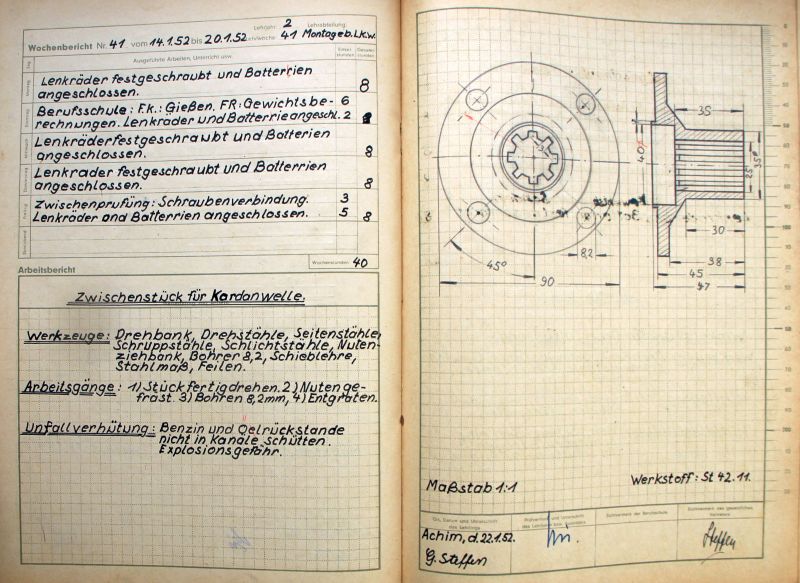 Lehrjahr: 2 Lehrabteilung:
Wochenbericht Nr. 41 vom 14.1.52 bis 20.1.52 Lehrwoche 41 Montage b. Lkw.
Tag Ausgeführte Arbeiten, Unterricht usw. Einzel stunden Gesamt stunden
Montag Lenkräder festgeschraubt und Batterrien
angeschlossen. 8
Dienstag Berufsschule: Fk.: Gießen, FR: Gewichtsbe- 6
rechnungen. Lenkräder und Batterrie angeschl. 2 8
Mittwoch Lenkräderfestgeschraubt und Batterien
angeschlossen. 8
Donnerstag Lenkrader festgeschraubt und Batterrien
angeschlossen. 8
Freitag Zwischenprüfung: Schraubenverbindung. 3
Lenkräder and Batterrien angeschlossen. 5 8
Sonnabend
Wochenstunden 40
Arbeitsbericht
Zwischenstück für Kardanwelle.
Werkzeuge: Drehbank, Drehstähle, Seitenstähle,
Schruppstähle, Schlichtstähle, Nuten-
ziehbank, Bohrer 8,2, Schieblehre,
Stahlmaß, Feilen.
Arbeitsgänge: 1) Stück fertigdrehen. 2) Nuten ge-
fräst. 3) Bohren 8,2mm, 4) Entgraten.
Unfallverhütung: Benzin und Oelrückstande
nicht in Kanäle schütten.
Explosionsgefahr.
35
40
25
35
30
45°
8,2
38
90
45
47
Maßstab 1:1
Werkstoff: St 42.11.
Ort, Datum und Unterschrift
des Lehrlings
Sichtvermerk der Berufsschule
Sichtvermerk des gesetzlichen
Vertreters
Achim, d. 22.1.52.
G. Steffen
Steffen